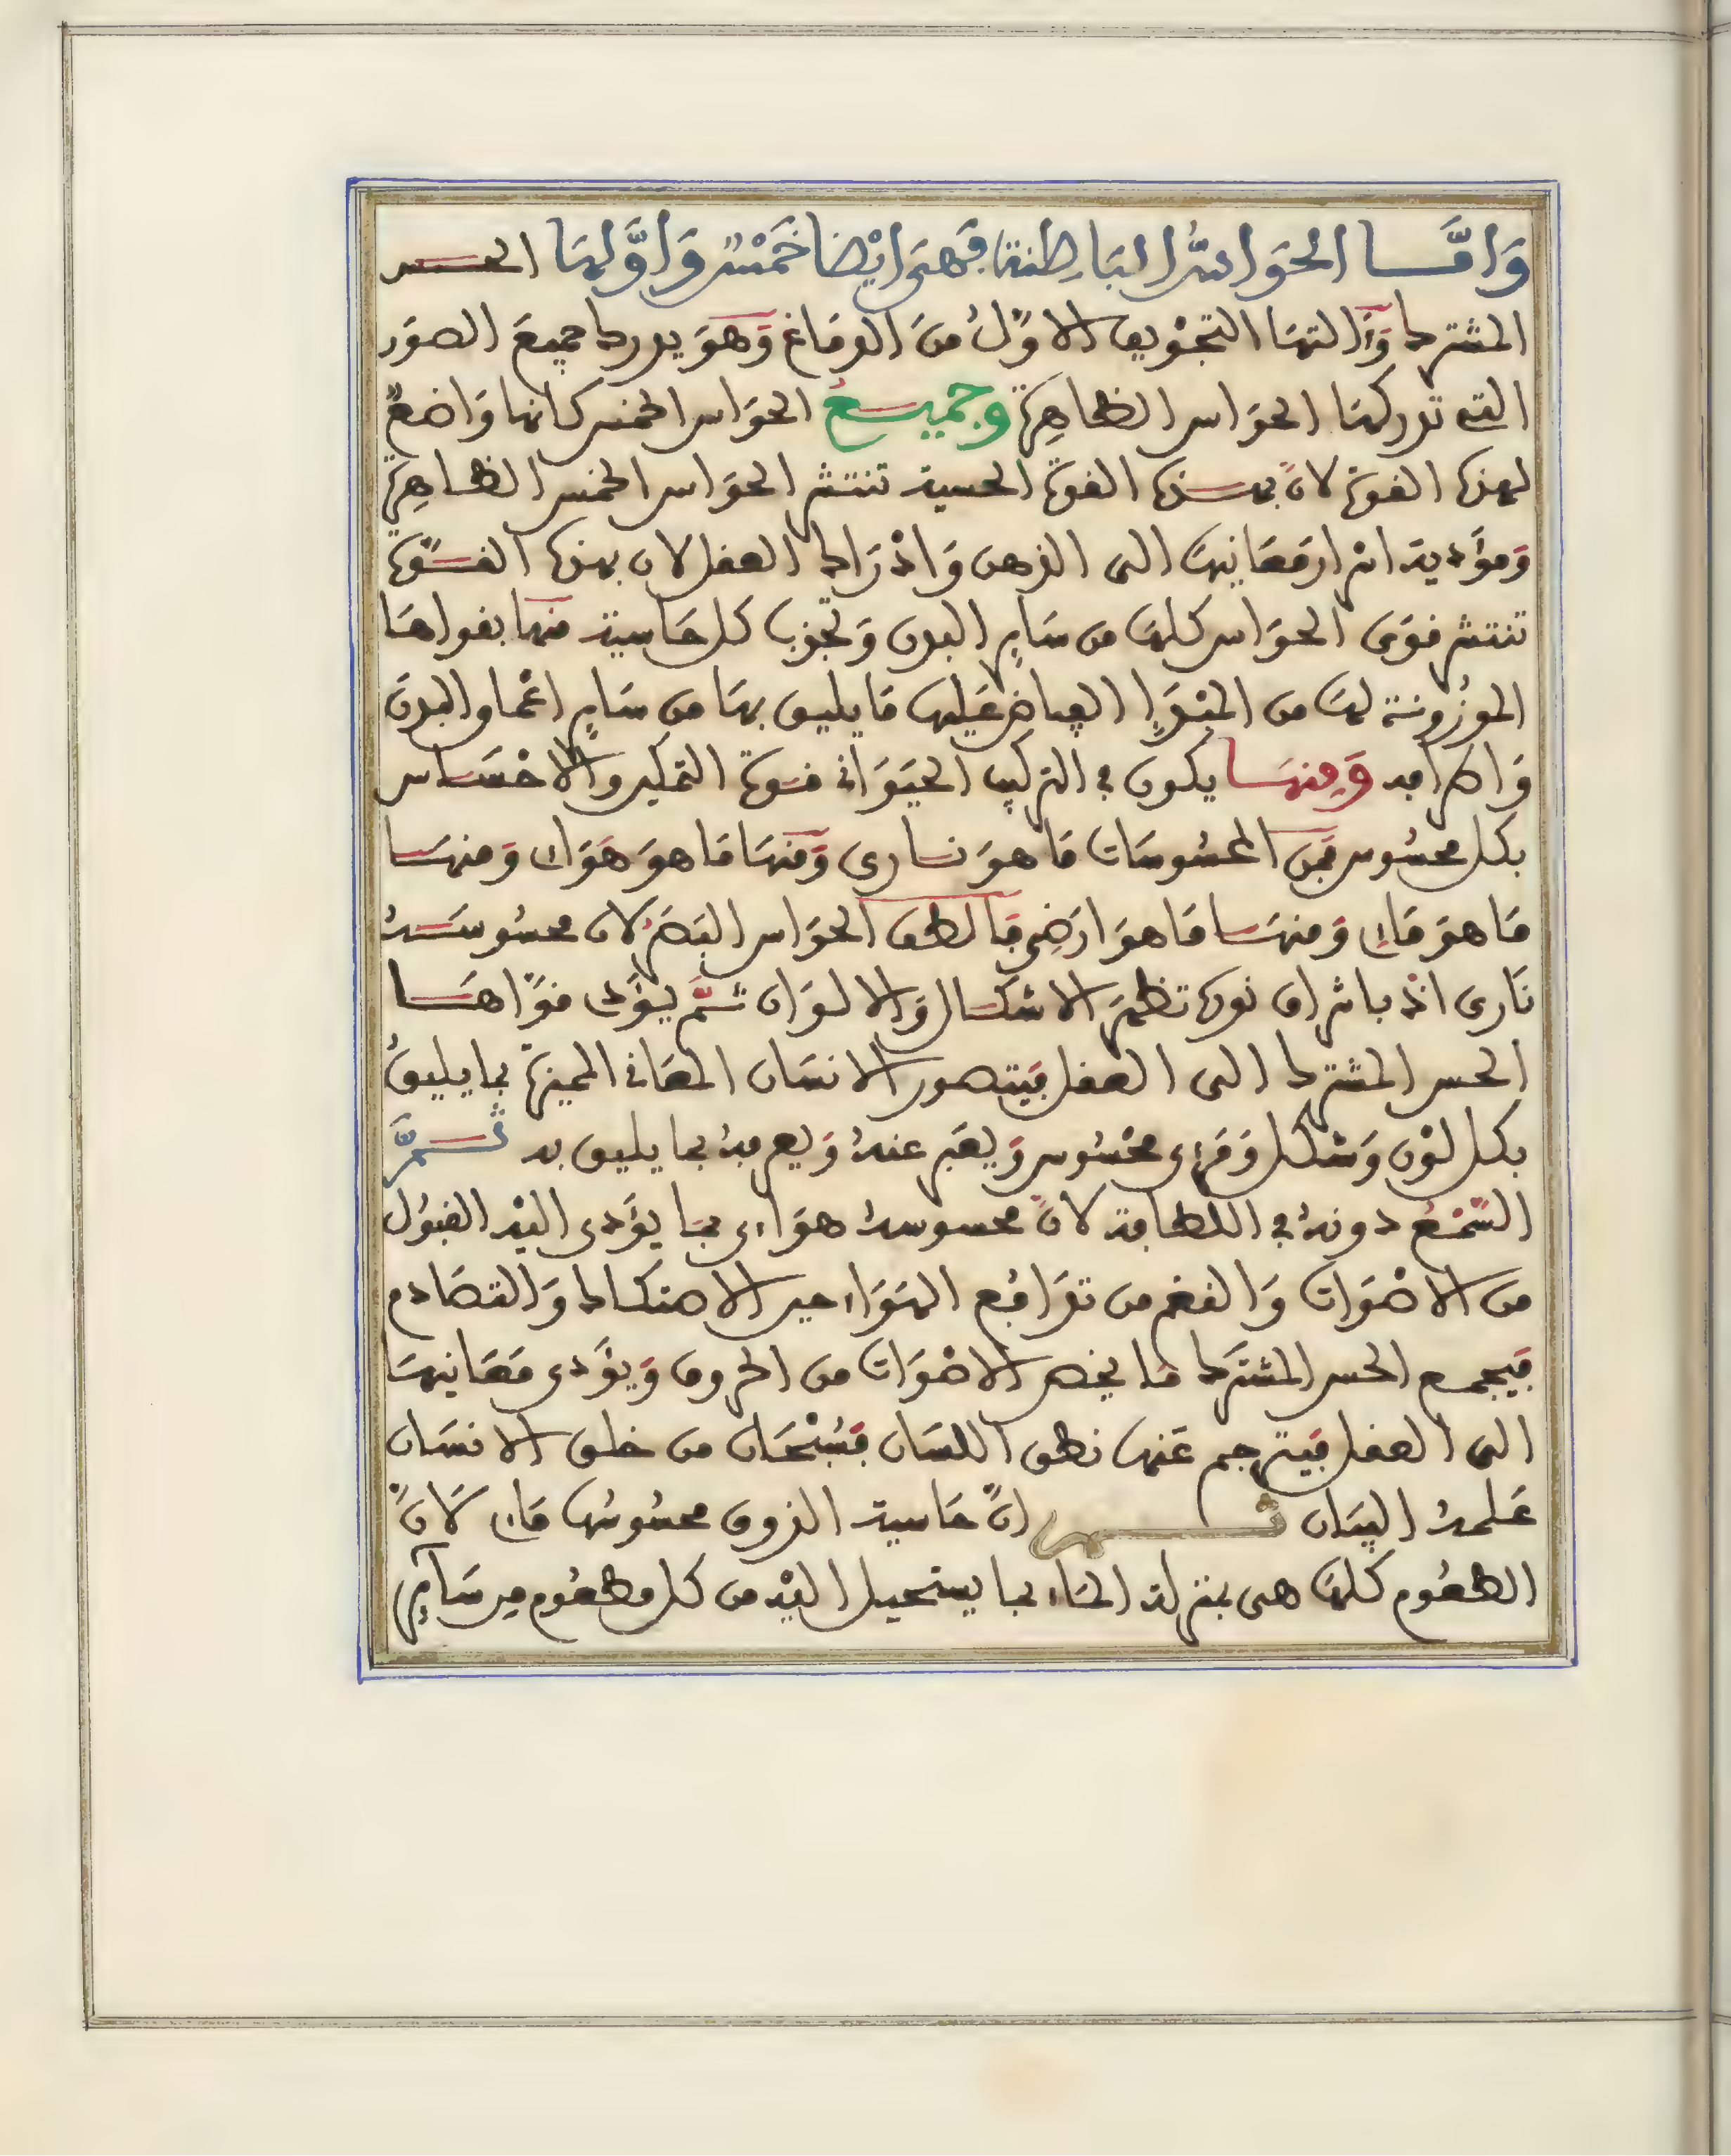 وَامَّا الحَوَاسُّ البَاطِنة فَهىَ ايْضا خَمْسٌ وَاوَّلهَا الحس
المشترك وَءَالتهَا التجْويف الاوّلُ منَ الدمَاغ وَهوَ يدرك جميعَ الصوَر
التى تدركهَا الحوَاس الظاهِرة وجميعُ الحوَاس الخمس كانها وَاضعةٌ
لهذه القوة لانّ بهذه القوة الحسية تنتشر الحوَاس الخمس الظاهِرة
وَموَدية اسْرار مَعَانيهَا الى الذهن وَادْرَاك العقل لان بهذه القوّة
تنتشر قوَى الحوَاس كلهَا من سَاير البدن وَتجذب كل حَاسية منهَا بقواهَا
الموْزُونة لهَا من الفيَّاض عَليهَا مَا يليق بهَا من سَاير اعْضاء البدن
وَاطرَافه وَمِنهَا يكون فى التركيب الحيَوَانى قوة التفكير والاحْسَاس
بكل محسُوس فمِن المحسُوسَات مَا هوَ نارى وَمنهَا مَا هوَ هَوَاءى وَمنهَا
مَا هوَ مَاءى وَمنهَا مَا هوَ ارَضِى فَالطف الحوَاس البَصَرُ لان محسُوسَهُ
نَارى اذ باشراق نوره تظهَر الاشكال وَالالوَان ثمَّ يوَدى قوّاهَا
الحس المشترك الى العقل فيَتصور الانسَان المعَانى المميزة بما يليقُ
بكل لوْن وَشكل وَمَرءى محْسُوس وَيعَبر عنهُ وَيعرفهُ بما يليق به ثمَّ
السَّمْعُ دونهُ فى اللطافة لانّ محسوسهُ هوَاءى بمَا يؤَدى اليْه القبُول
من الاصْوَات وَالنغم من تدَافع الهوَاء حين الاصتكاك وَالتصَادم
فيَجمع الحس المشترَك مَا يخص الاصْوَات من الحروف وَيؤَدى مَعَانيهَا
الى العقل فيَترجم عَنهَا نطق اللسَان فسُبْحَان من خلق الانسَان
عَلمهُ البيَان ثم انّ حَاسية الذوق محسُوسُهَا مَاءى لَانّ
الطعُوم كلهَا هى بمنزلة المَاء بما يستحيل اليْه من كل مطعُوم مِن سَآيِر